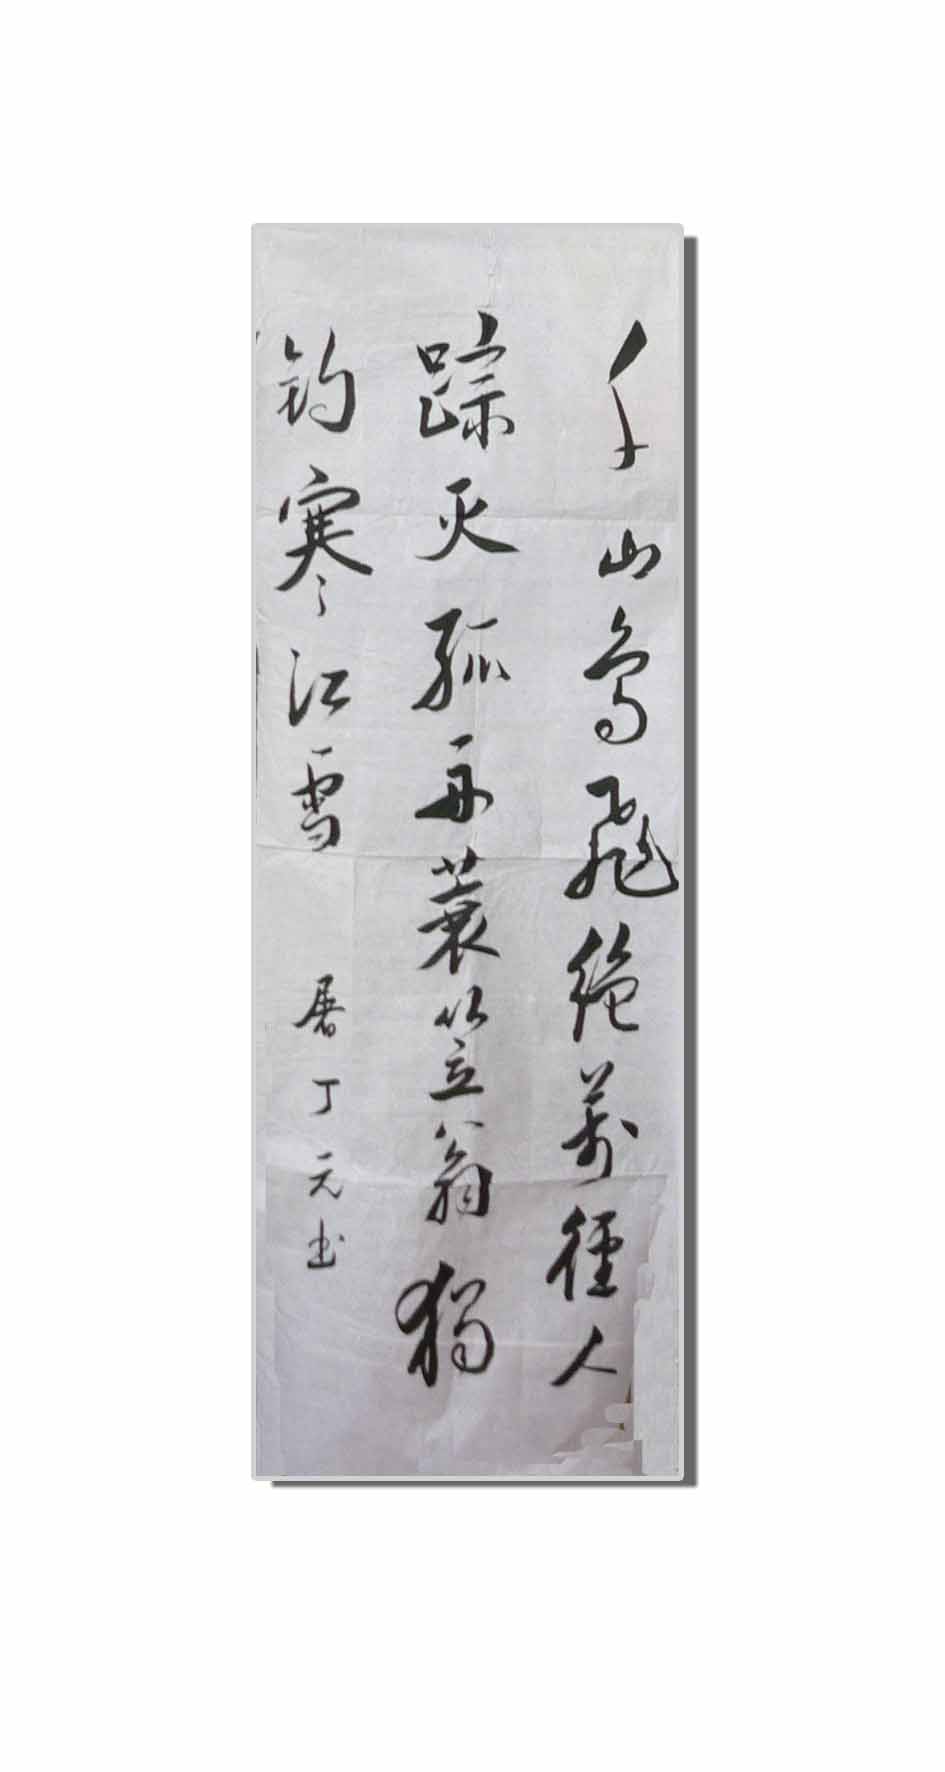 千山鸟飛绝萬径人
踪灭孤舟蓑笠翁独
钓寒江雪
屠丁元书